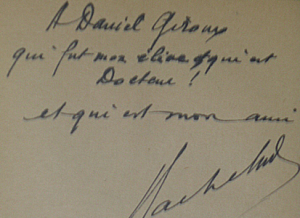 A Daniel Giroux
qui fut mon élève et qui est
Docteur !
et qui est mon ami